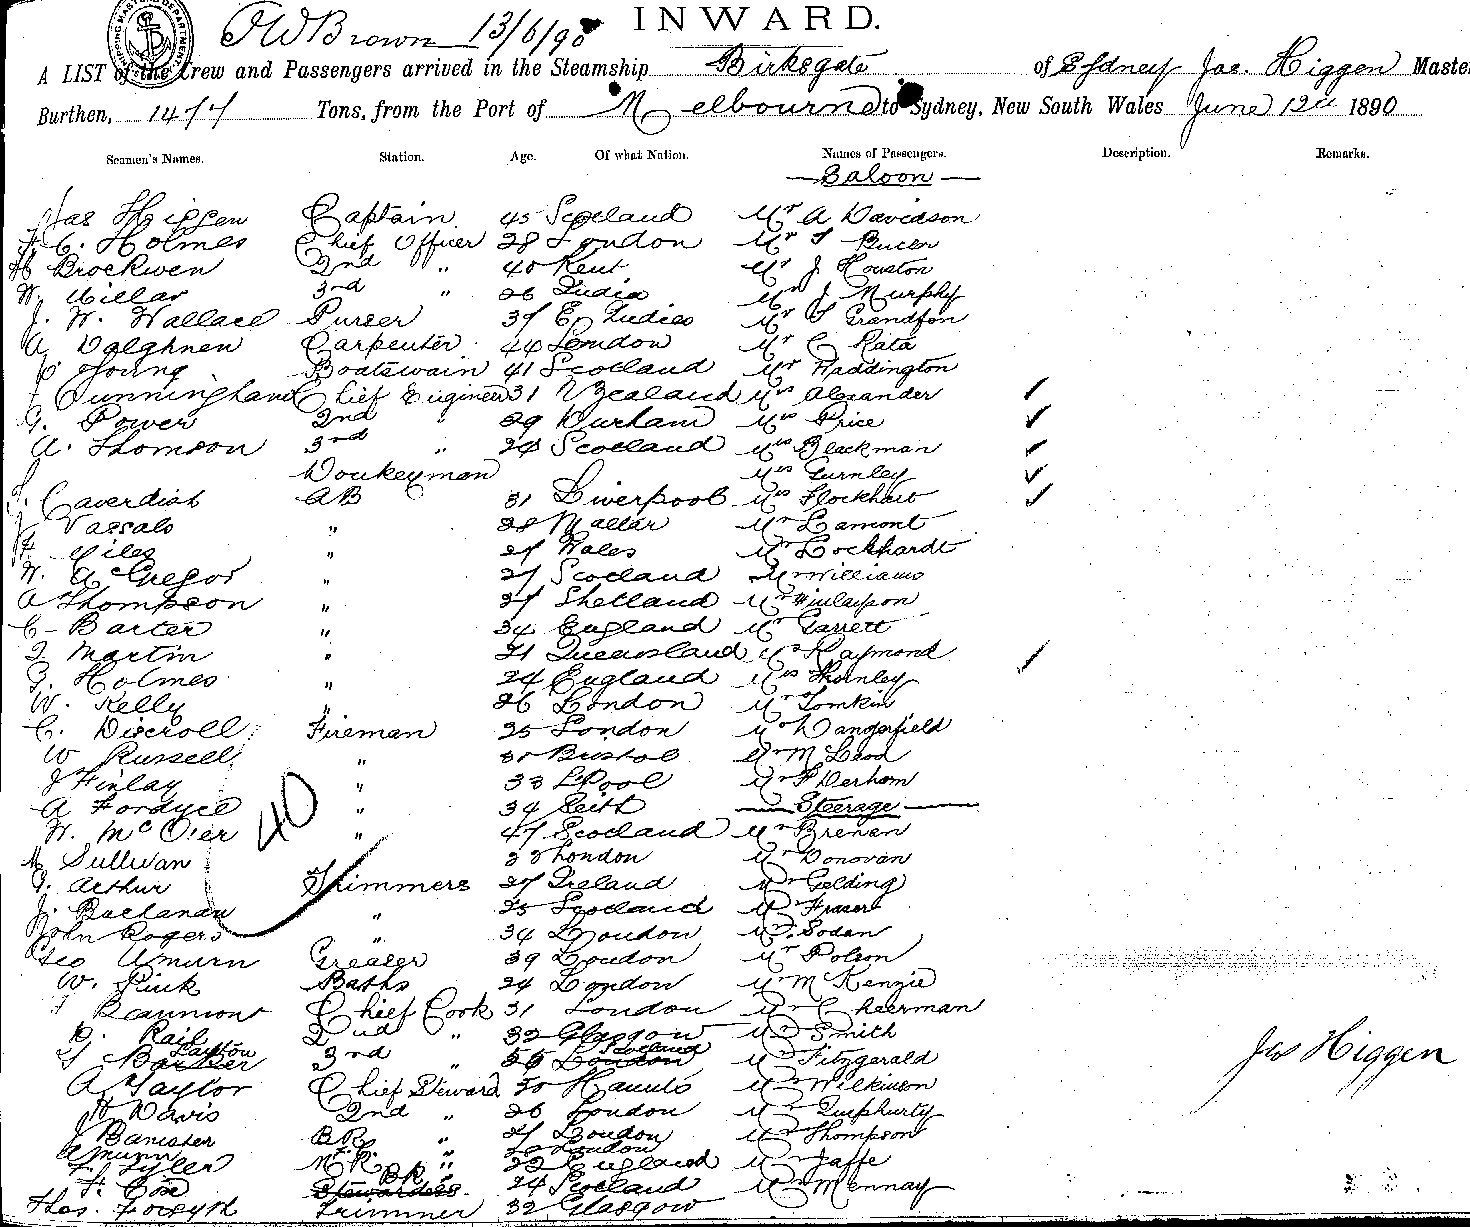 INWARD.
SHIPPING MASTERS DEPARTMENT
J W Brown 13/6/90
A LIST of the Crew and Passengers arrived in the Steamship Birksgate of Sydney Jas. Higgen Master
Burthen, 1477 Tons, from the Port of Melbourne to Sydney, New South Wales June 12th 1890
Seamen's Names. Station. Age. Of what Nation. Names of Passengers. Description. Remarks.
Saloon
Jas Higgen Captain 45 Scotland Mr A Davidson
Holmes Chief Officer 28 London Mr
H Brockwen 2nd " 40 Kent Mr J Houston
W. Millar 3rd " 26 India Mr J Murphy
J. W. Wallace Purser 37 E Indies Mr
A Carpenter 44 London Mr C Rata
Young Boatswain 41 Scotland Mr Haddington
Cunningham Chief Engineer 31 N Zealand Mrs Alexander
G. Power 2nd " 29 Durham Mrs Price
A. Thomson 3rd " 24 Scotland Mrs Blackman
Donkeyman Mrs Gurnley
Caverdish AB 31 Liverpool Mrs Flockhart
Vassalo " 28 Mr Lamont
Miles " 27 Wales Mr Lockhardt
W. McGregor " 27 Scotland Mr Williams
A Thompson " 27 Shetland Mr Finlayson
C Barter " 34 England Mr Garrett
Martin " 21 Queensland Mrs Raymond
G. Holmes " 24 England Mrs Thornley
W. Kelly " 26 London Mr Tomkin
C. Discroll Fireman 25 London Mr Dangerfield
W Russell " Bristol Mr McLeod
J Finlay " 33 L'Pool Mr F Derham
A Fordyce " 34 Leith Steerage
W. Mc " 47 Scotland Mr Brenan
M Sullivan 33 London Mr Donovan
40
Arthur Trimmers 27 Ireland Mr Gelding
J. Buchanan " 25 Scotland Mr Fraser
John Rogers " 34 London Mr Sodan
Geo Greaser 39 London Mr Polson
W. Pink Baths 24 London Mr McKenzie
Beaumont Chief Cook 31 London Mr Cheerman
2nd " 32 Glasgow Mr Smith
Layton Scotland
Barker 3rd " London Mr Fitzgerald
A Taylor Chief Steward 50 Mr Wilkinson
H Davis 2nd " 26 London Mr
Banister BR " 27 London Mr Thompson
London
F. Tyler " 22 England Mr Jaffe
BR "
F. Cox Stewardess 24 Scotland Mr Mennay
Thos. Forsyth Trimmer 32 Glasgow
Jas Higgen